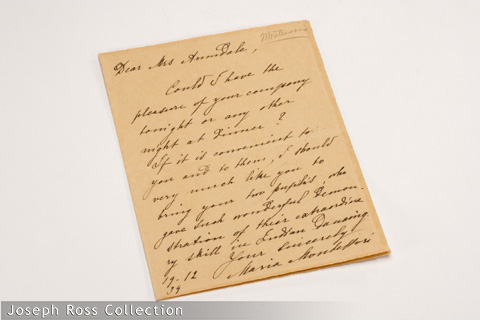 Dear Mrs Annsdale,
Could I have the
pleasure of your company
tonight or any other
night at Dinner?
If it is convenient to
you and to them, I should
very much like you to
bring your two pupils, who
gave such wonderful Demon-
stration of their extraordina
ry skill in Indian Dancing.
Your sincerely
Maria Montessori
19-12
39
Joseph Ross Collection